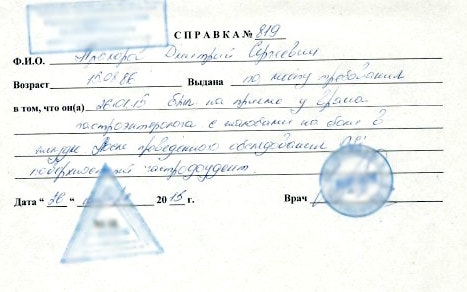 СПРАВКА № 819
Ф.И.О. Прохоров Дмитрий Сергеевич
Возраст 15.08.86 Выдана по месту требования
в том, что он(а) 26.01.15 был на приеме у врача
гастроэнтеролога с жалобами на боли в
желудке После проведённого обследования DS:
поверхностный гастродуоденит.
Дата " 26 " 20 15 г. Врач